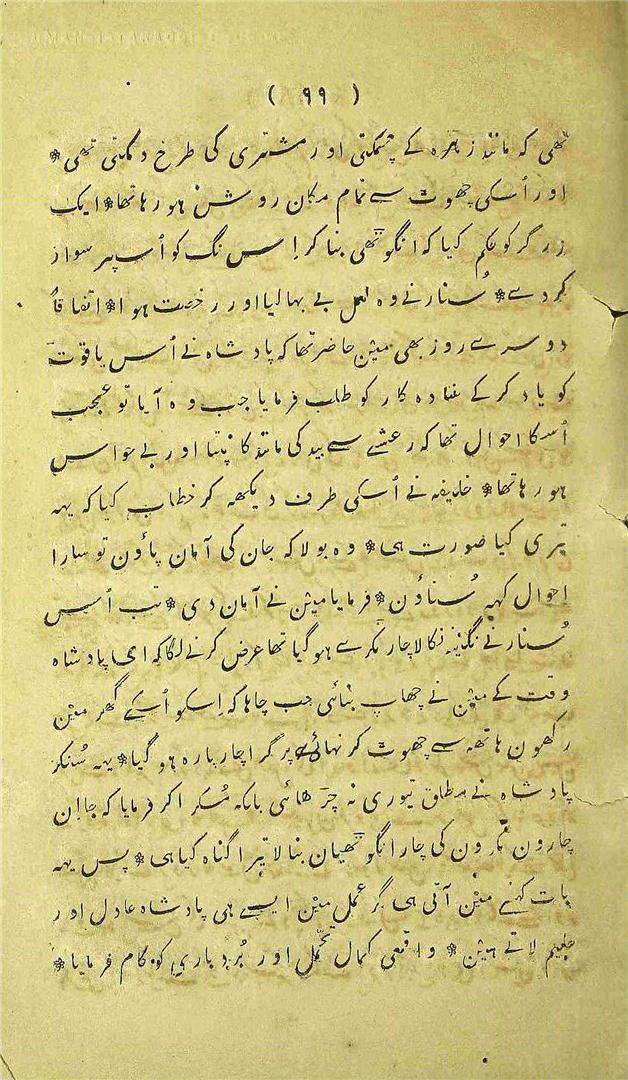 ( ۹۹ )
تھی کہ مانند زہرہ کے چمکتی اور مشتری کی طرح دمکتی تھی *
اور اُسکی چھوٹ سے تمام مکان روشن ہو رہا تھا * ایک
زرگر کو حکم کیا کہ انگوٹھی بنا کر اِس نگ کو اُسپر سوار
کر دے * سُنار نے وہ لعل بے بہا لیا اور رخصت ہوا * اتفاقاً
دوسرے روز بھی مین حاضر تھا کہ پادشاہ نے اُس یاقوت
کو یاد کر کے سادہ کار کو طلب فرمایا جب وہ آیا تو عجب
اُسکا احوال تھا کہ رعشے سے بید کی مانند کانپتا اور بے حواس
ہو رہا تھا * خلیفہ نے اُسکی طرف دیکھہ کر خطاب کیا کہ یہہ
تیری کیا صورت ہی * وہ بولا کہ جان کی آمان پاؤن تو سارا
احوال کہہ سُناؤن * فرمایا مین نے آمان دی * تب اُس
سُنار نے نگینہ نکالا چار ٹکرے ہو گیا تھا عرض کرنے لگا کہ ای پادشاہ
وقت کے مین نے چھاپ بنائی جب چاہا کہ اِسکو اُسکے گھر مین
رکھون ہاتھہ سے چھوٹ کر نہائی پر گرا چار پارہ ہو گیا * یہہ سُنکر
پادشاہ نے مطلق تیوری نہ چڑھائی بلکہ مُسکرا کر فرمایا کہ جا اِن
چارون ٹکرون کی چار انگوٹھیان بنا لا تیرا گناہ کیا ہی * پس یہہ
بات کہنے مین آتی ہی گر عمل مین ایسے ہی پادشاہ عادل اور
حلیم لاتے ہین * واقعی کمال تحمّل اور بُردباری کو کام فرمایا *